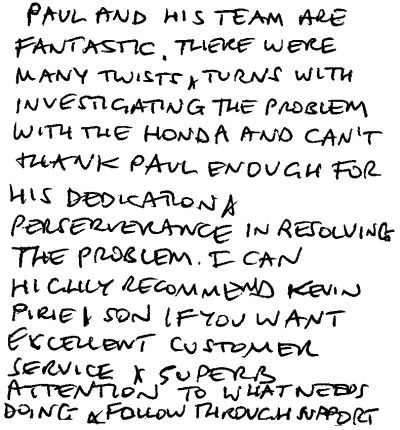 PAUL AND HIS TEAM ARE
FANTASTIC. THERE WERE
MANY TWISTS & TURNS WITH
INVESTIGATING THE PROBLEM
WITH THE HONDA AND CAN'T
THANK PAUL ENOUGH FOR
HIS DEDICATION &
PERSERVERANCE IN RESOLVING
THE PROBLEM. I CAN
HIGHLY RECOMMEND KEVIN
PIRIE & SON IF YOU WANT
EXCELLENT CUSTOMER
SERVICE & SUPERB
ATTENTION TO WHAT NEEDS
DOING & FOLLOW THROUGH SUPPORT